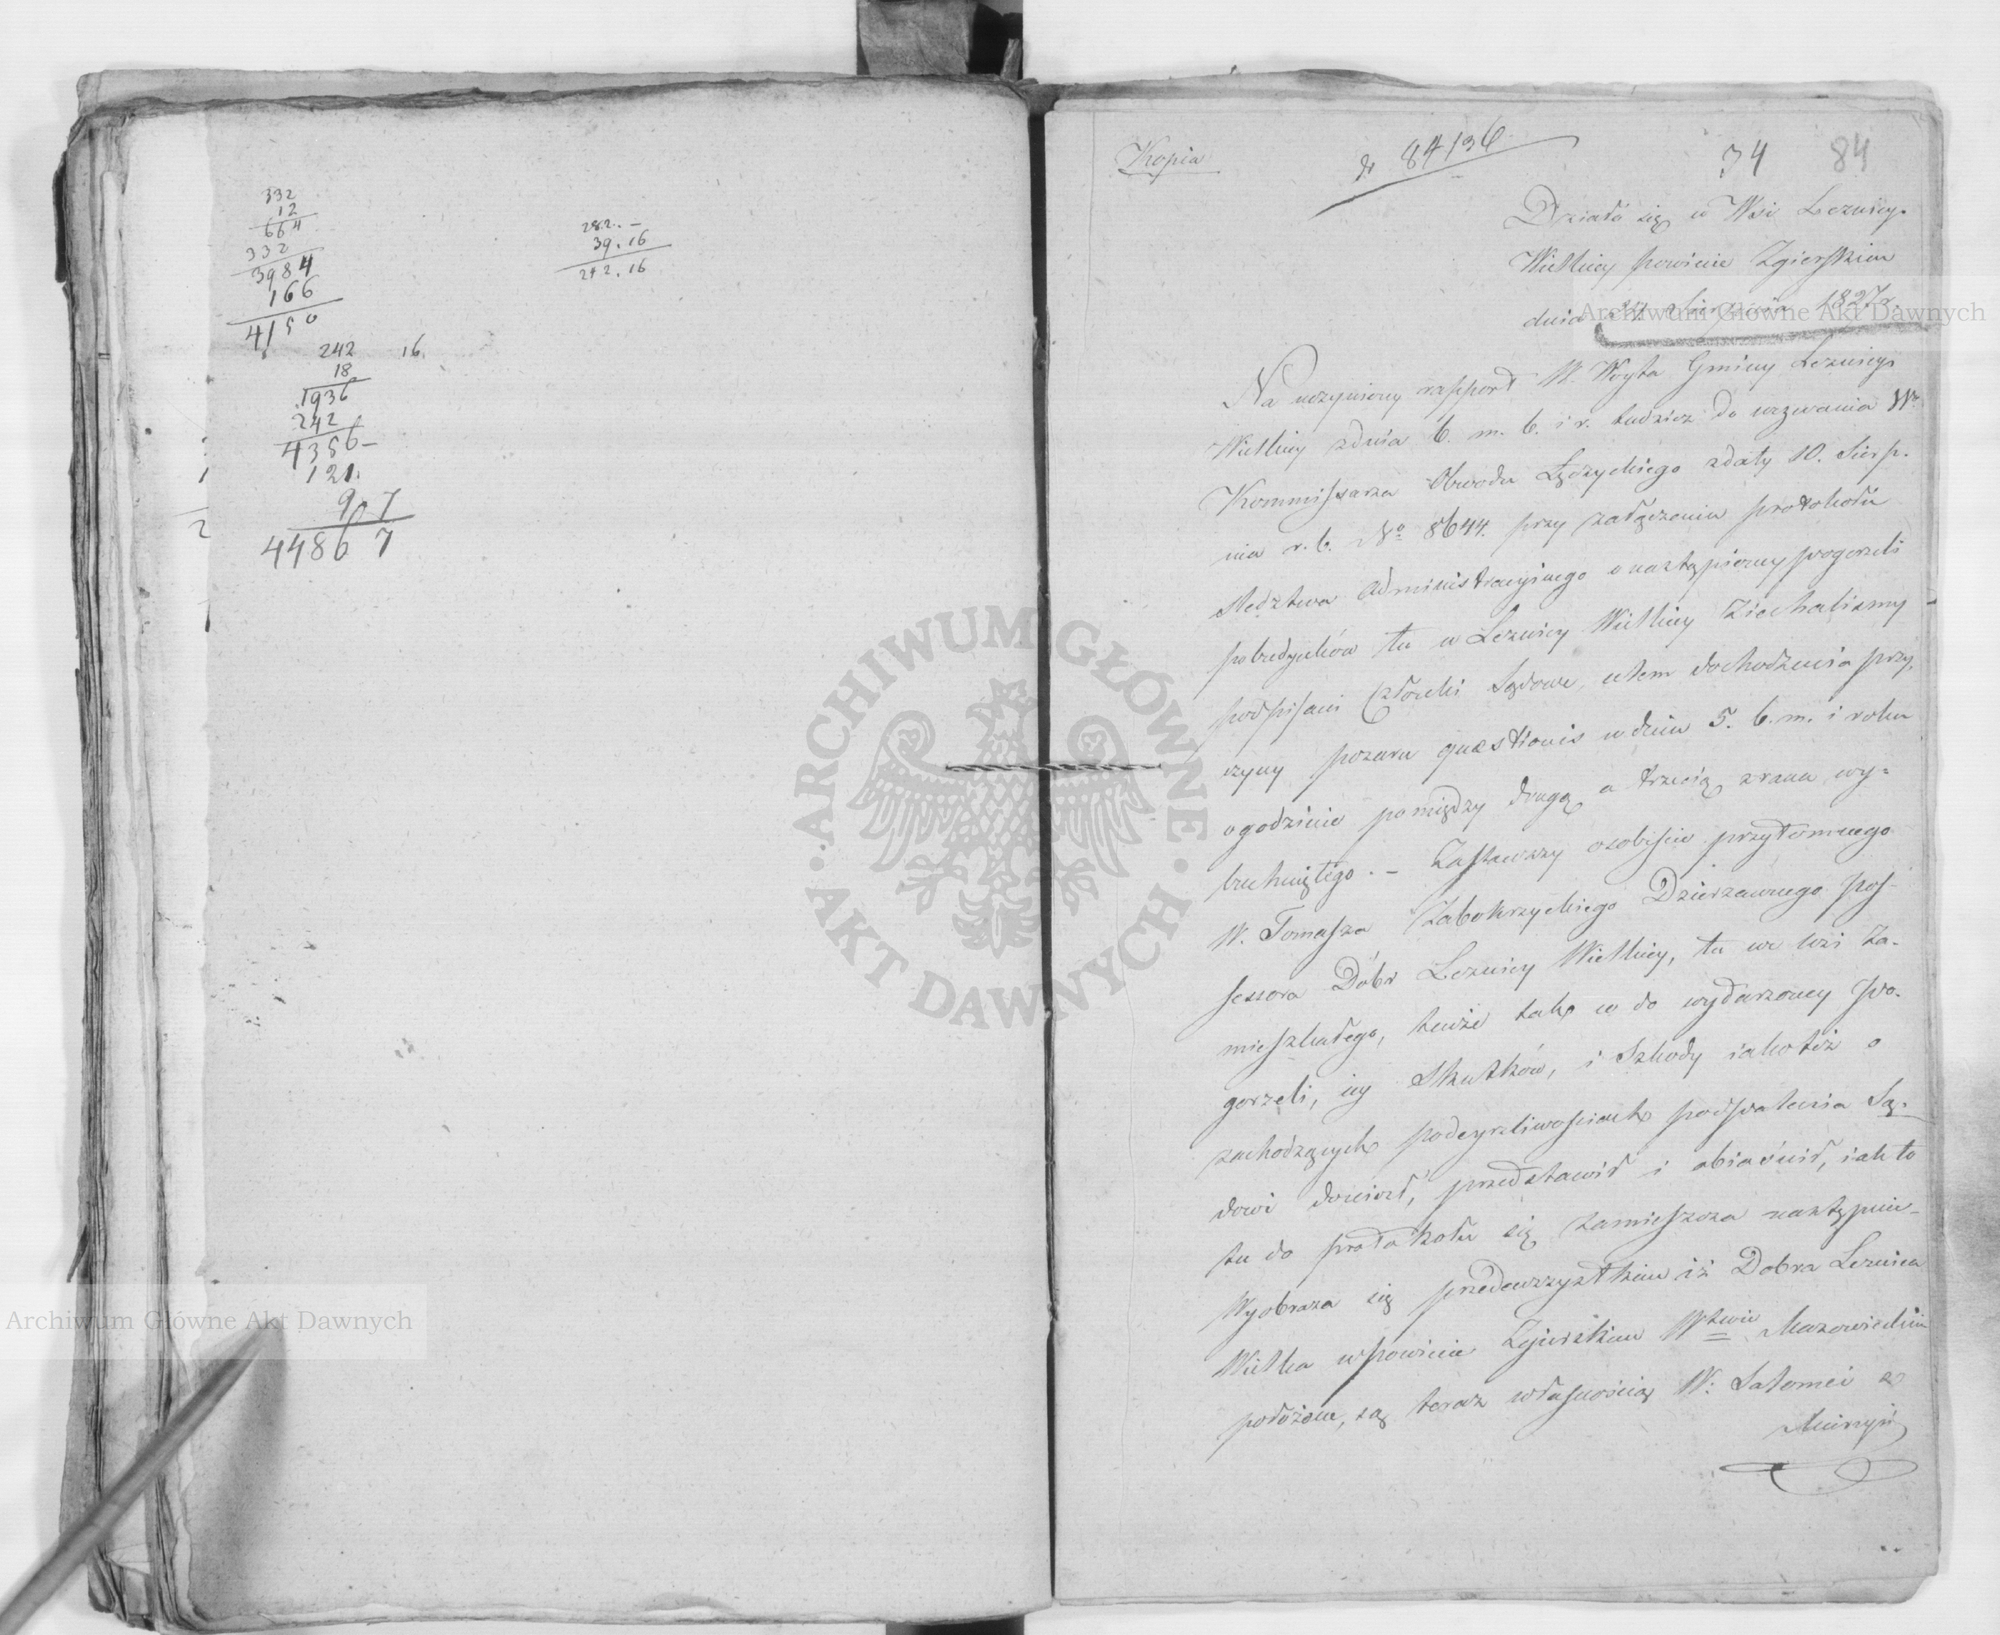 332
12
664
332
3984
166
4150
242 16.
18
1936
242
4356-
121.
907
44867
282.-
39.16
242.16
Kopia
84136
34 84
Działo się w Wsi Leznicy
Wielkiey powiecie Zgierskim
dnia Sierpnia 1827 r.
Na uczyniony rapport W. Woyta Gminy Leznicy
Wielkiey zdnia 6. m. b. i r. tudzież do wezwania W°
Kommissarza Obwodu Łęczyckiego zdaty 10. Sierp.
nia r. b. N° 8644. przy załączeniu protokołu
sledztwa Administracyinego o nastąpioney pogorzeli
pobudynków tu w Leznicy Wielkiey Ziechalismy
podpisani Członki Sądowe, celem dochodzenia przy,
czyny pozaru quaestionis w dniu 5. b. m. i roku
o godzinie pomiędzy drugą a trzecią zrana wy=
buchniętego. – Zastawszy osobiscie przytomnego
W. Tomasza Zabokrzyckiego Dzierzawnego pos-
sessora Dóbr Leznicy Wielkiey, tu we wsi Za-
mieszkałego, tenże tak co do wydarzoney Po-
gorzeli, iey Skutków, i Szkody iakoteż o
zachodzących podeyrzliwosciach podpalenia Są-
dowi doniosł, przedstawił i obiaśnił, iak to
tu do protokołu się zamieszcza następnie-
Wyobraza się przedewszystkiem iż Dobra Leznica
Wielka w powiecie Zgierskim Wztwie Mazowieckim
położone, są teraz własnością W: Salomei z
Archiwum Główne Akt Dawnych
Archiwum Główne Akt Dawnych
ARCHIWUM GŁÓWNE · AKT DAWNYCH ·